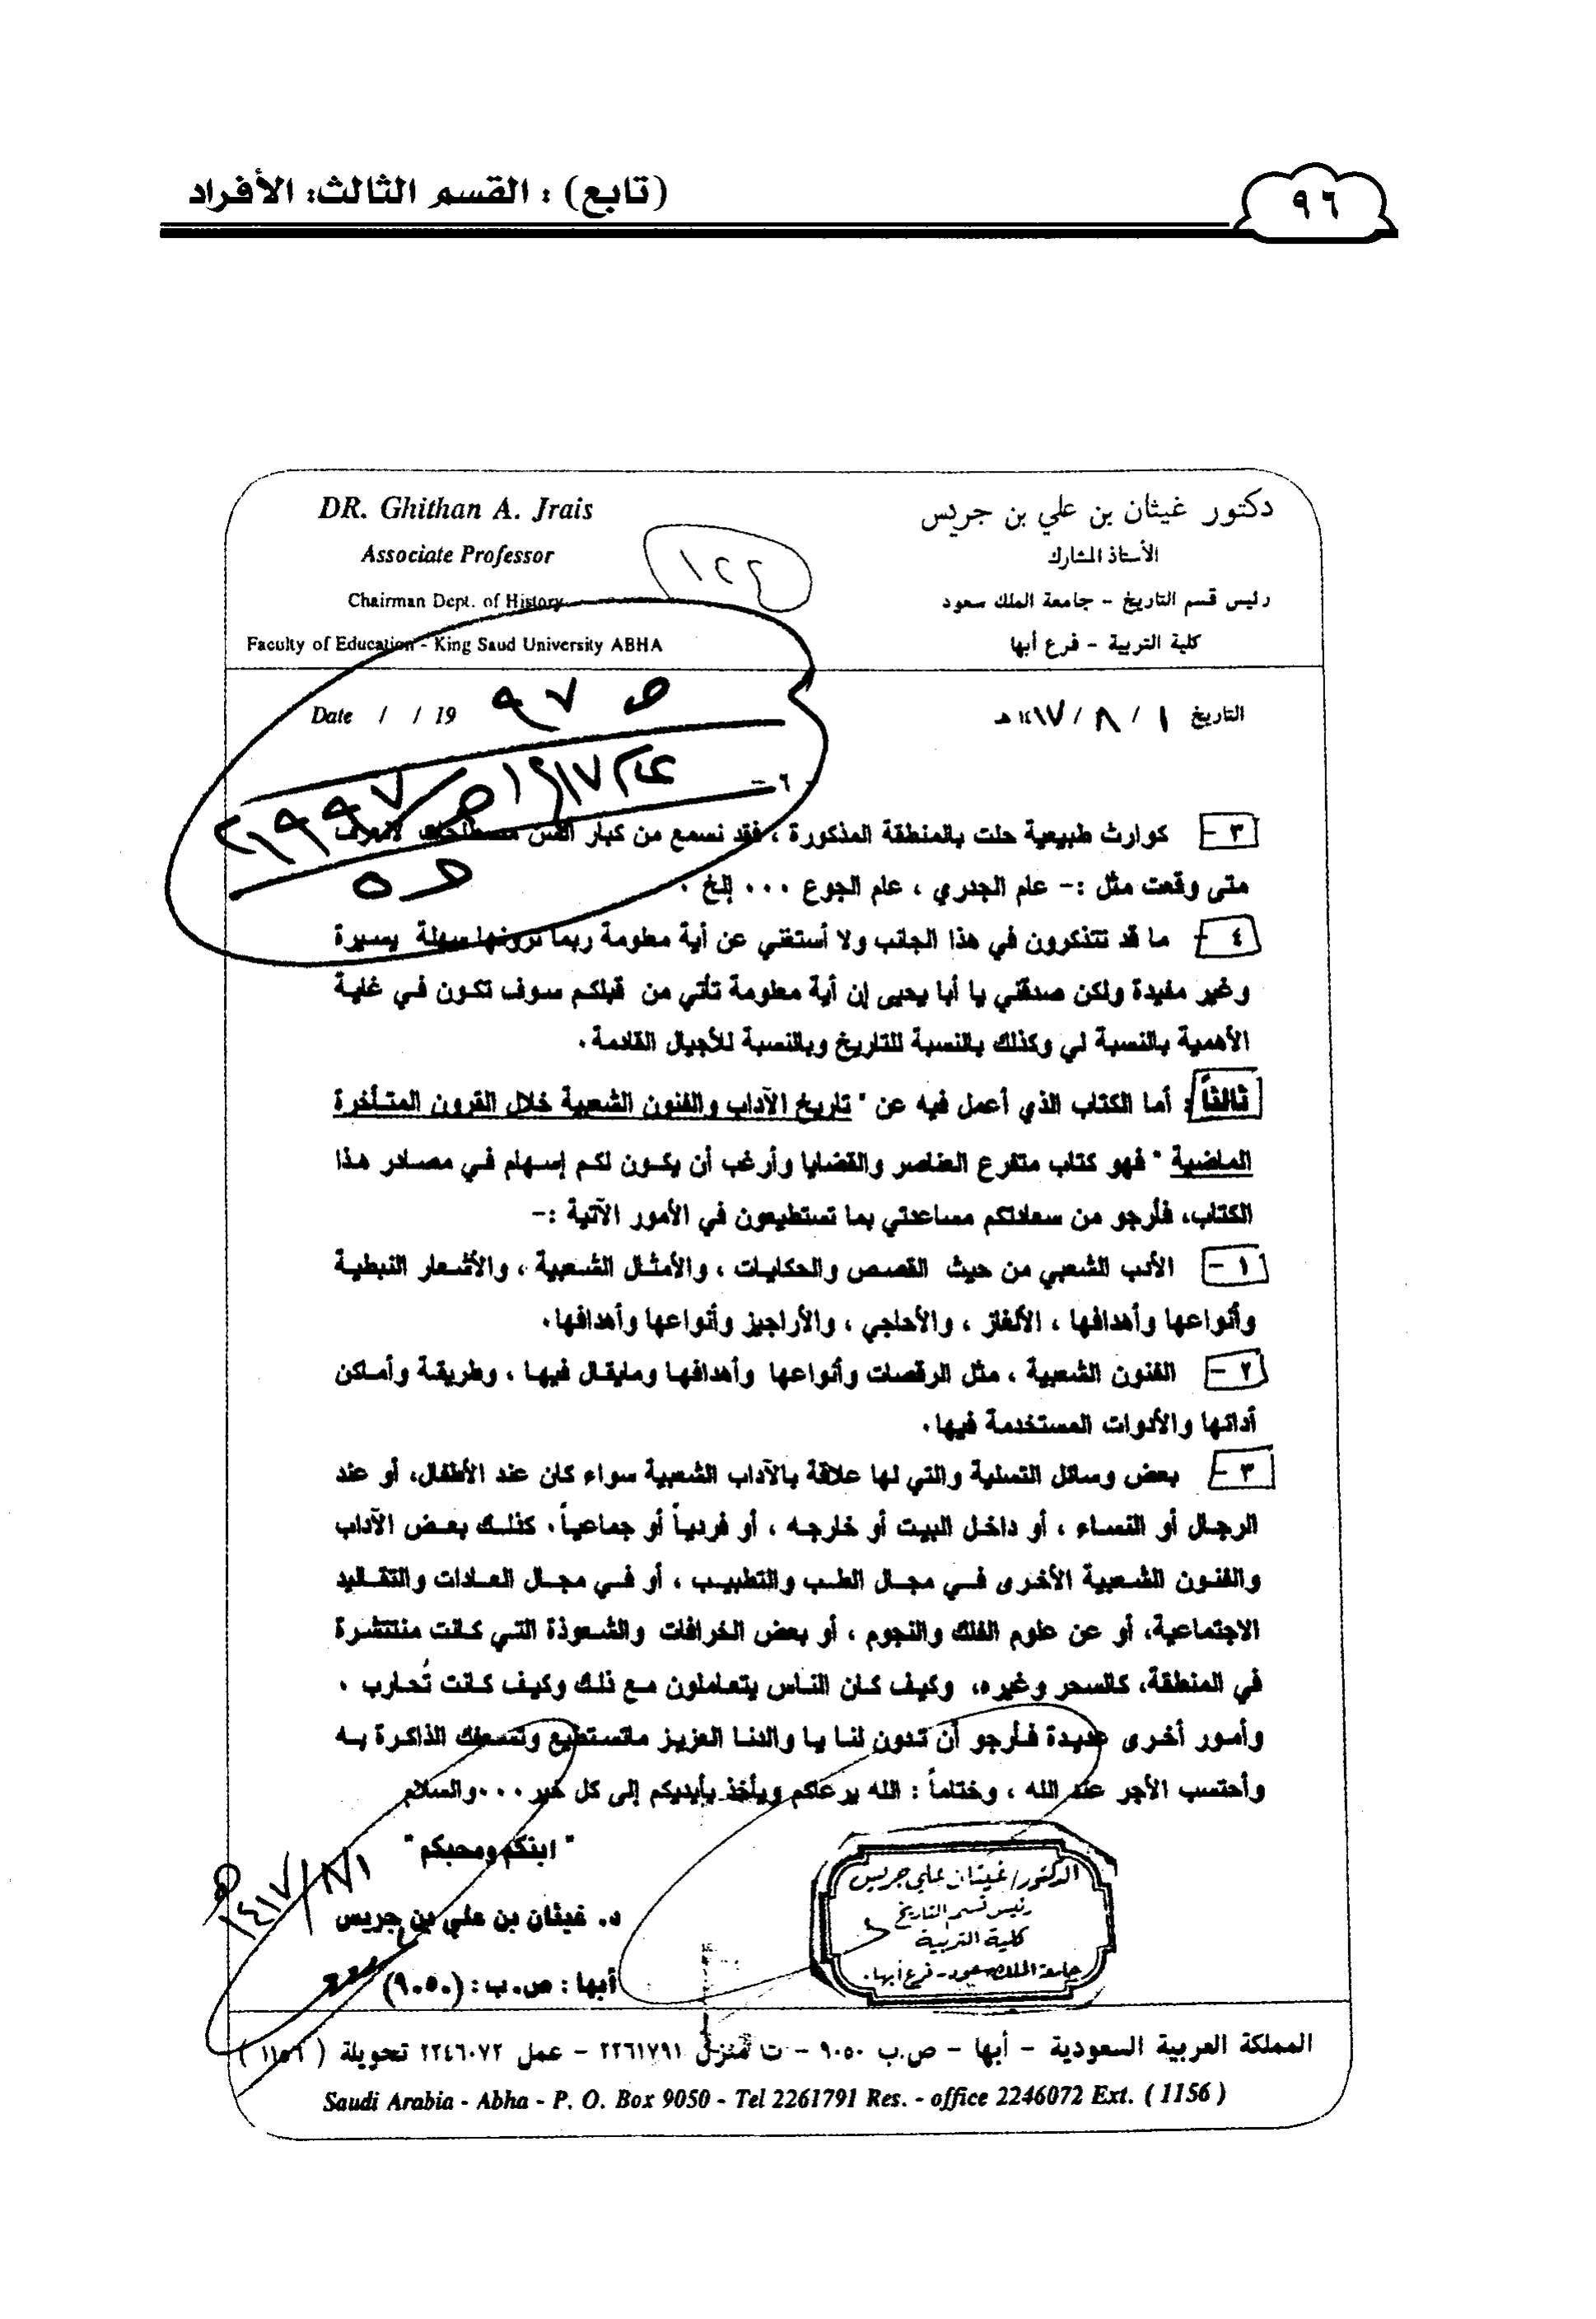 (تابع) : القسم الثالث: الأفراد
٩٦
DR. Ghithan A. Jrais
دكتور غيثان بن علي بن جريس
Associate Professor
الأستاذ المشارك
Chairman Dept. of History
رئيس قسم التاريخ - جامعة الملك سعود
Faculty of Education - King Saud University ABHA
كلية التربية - فرع أبها
التاريخ ١ / ٨ / ١٤١٧هـ
Date / / 19
ص ٩٧
- ٦ -
٣- كوارث طبيعية حلت بالمنطقة المذكورة ، فقد نسمع من كبار السن مصطلحات لانعرف
متى وقعت مثل :- عام الجدري ، عام الجوع ... إلخ .
٤- ما قد تتذكرون في هذا الجانب ولا أستغني عن أية معلومة ربما ترونها سهلة يسيرة
وغير مفيدة ولكن صدقني يا أبا يحيى إن أية معلومة تأتي من قبلكم سوف تكون في غاية
الأهمية بالنسبة لي وكذلك بالنسبة للتاريخ وبالنسبة للأجيال القادمة .
ثالثاً : أما الكتاب الذي أعمل فيه عن " تاريخ الآداب والفنون الشعبية خلال القرون المتأخرة
الماضية " فهو كتاب متفرع العناصر والقضايا وأرغب أن يكون لكم إسهام في مصادر هذا
الكتاب، فأرجو من سعادتكم مساعدتي بما تستطيعون في الأمور الآتية :-
١- الأدب الشعبي من حيث القصص والحكايات ، والأمثال الشعبية ، والأشعار النبطية
وأنواعها وأهدافها ، الألغاز ، والأحاجي ، والأراجيز وأنواعها وأهدافها.
٢- الفنون الشعبية ، مثل الرقصات وأنواعها وأهدافها ومايقال فيها ، وطريقة وأماكن
أدائها والأدوات المستخدمة فيها.
٣- بعض وسائل التسلية والتي لها علاقة بالآداب الشعبية سواء كان عند الأطفال، أو عند
الرجال أو النساء ، أو داخل البيت أو خارجه ، أو فردياً أو جماعياً. كذلك بعض الآداب
والفنون الشعبية الأخرى في مجال الطب والتطبيب ، أو في مجال العادات والتقاليد
الاجتماعية، أو عن علوم الفلك والنجوم ، أو بعض الخرافات والشعوذة التي كانت منتشرة
في المنطقة، كالسحر وغيره، وكيف كان الناس يتعاملون مع ذلك وكيف كانت تُحارب .
وأمور أخرى عديدة فأرجو أن تدون لنا يا والدنا العزيز ماتستطيع وتسعفك الذاكرة به
وأحتسب الأجر عند الله ، وختاماً : الله يرعاكم ويأخذ بأيديكم إلى كل خير ...والسلام
" ابنكم ومحبكم "
د. غيثان بن علي بن جريس
أبها : ص.ب : (٩٠٥٠)
١٤١٧/٨/١هـ
الدكتور/ غيثان علي جريس
رئيس قسم التاريخ
كلية التربية
جامعة الملك سعود - فرع أبها.
المملكة العربية السعودية - أبها - ص.ب ٩٠٥٠ - ت منزل ٢٢٦١٧٩١ - عمل ٢٢٤٦٠٧٢ تحويلة ( ١١٥٦ )
Saudi Arabia - Abha - P. O. Box 9050 - Tel 2261791 Res. - office 2246072 Ext. ( 1156 )